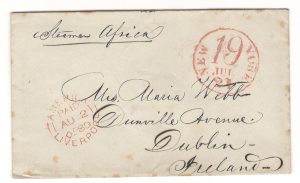 Steamer Africa
NEW YORK
19
JUL
Mrs. Maria Webb
Dunville Avenue
Dublin
Ireland
PAID
LIVERPOOL
AU